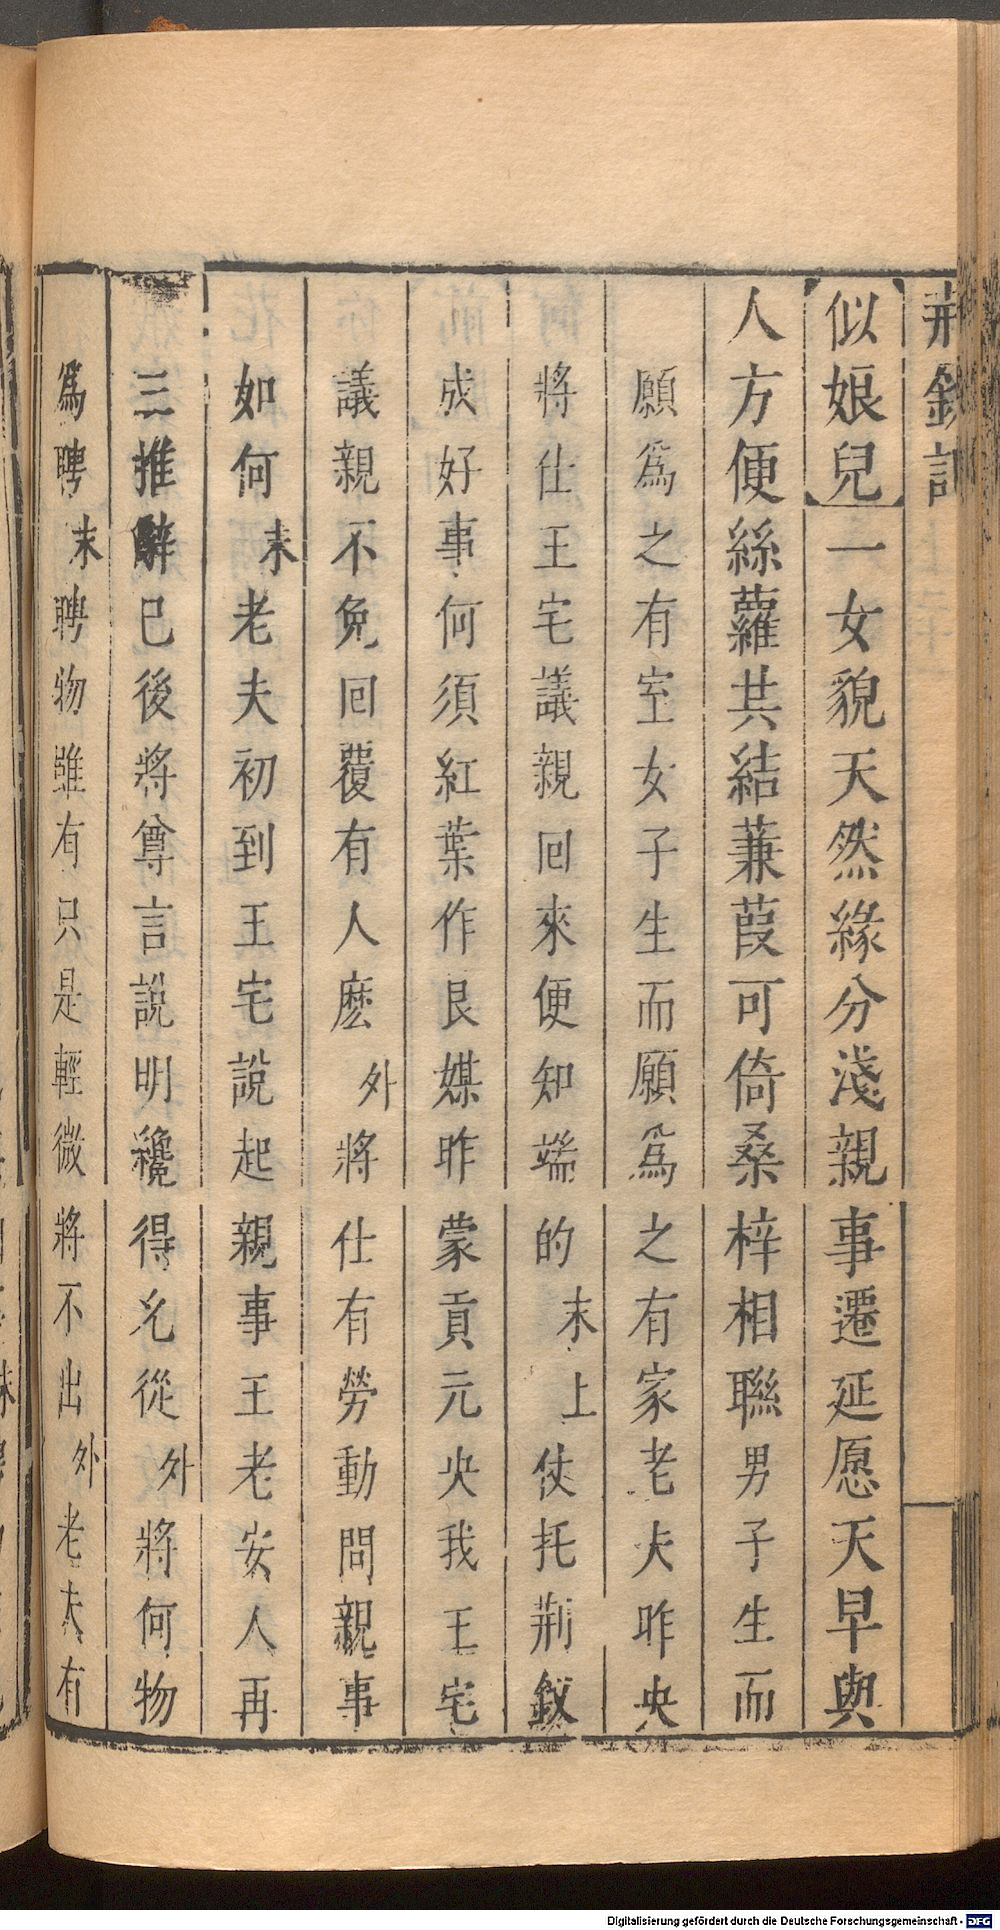 荆釵記
【似娘兒】一女貌天然緣分淺親事遷延愿天早與
人方便絲蘿共結蒹葭可倚桑梓相聯男子生而
願爲之有室女子生而願爲之有家老夫昨央
將仕王宅議親回來便知端的末上仗托荆釵
成好事何須紅葉作良媒昨蒙貢元央我王宅
議親不免回覆有人麽外將仕有勞動問親事
如何末老夫初到王宅說起親事王老安人再
三推辭已後將尊言說明纔得允從外將何物
爲聘末聘物雖有只是輕微將不出外老夫有
Digitalisierung gefördert durch die Deutsche Forschungsgemeinschaft - DFG